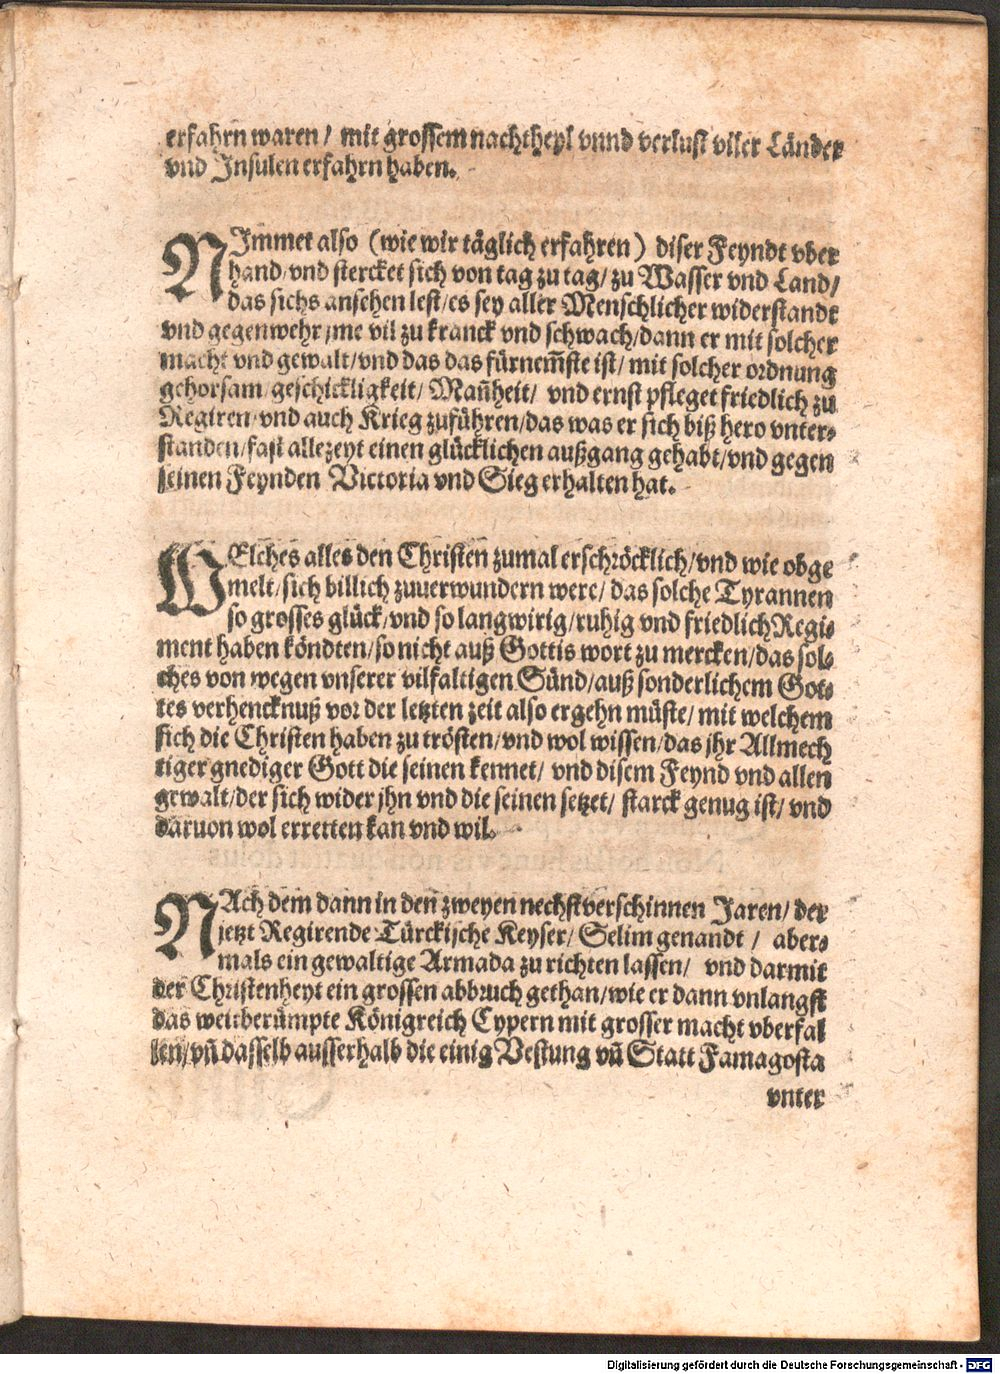 erfahrn waren/ mit grossem nachtheyl vnnd verlust viler Länder
vnd Insulen erfahrn haben.
NImmet also (wie wir täglich erfahren) diser Feyndt vber
hand/vnd stercket sich von tag zu tag/ zu Wasser vnd Land/
das sichs ansehen lest/es sey aller Menschlicher widerstandt
vnd gegenwehr jme vil zu kranck vnd schwach/dann er mit solcher
macht vnd gewalt/vnd das das fürnem̄ste ist/ mit solcher ordnung
gehorsam/geschickligkeit/ Mañheit/ vnd ernst pfleget friedlich zu
Regiren/vnd auch Krieg zuführen/das was er sich biß hero vnter-
standen/fast allezeyt einen glücklichen außgang gehabt/vnd gegen
seinen Feynden Victoria vnd Sieg erhalten hat.
WElches alles den Christen zumal erschröcklich/vnd wie obge
melt/sich billich zuuerwundern were/ das solche Tyrannen
so grosses glück/vnd so langwirig/ruhig vnd friedlich Regi-
ment haben köndten/so nicht auß Gottis wort zu mercken/das sol-
ches von wegen vnserer vilfaltigen Sünd/auß sonderlichem Got-
tes verhencknuß vor der letzten zeit also ergehn müste/ mit welchem
sich die Christen haben zu trösten/vnd wol wissen/das jhr Allmech
tiger gnediger Gott die seinen kennet/ vnd disem Feynd vnd allen
gewalt/der sich wider jhn vnd die seinen setzet/ starck genug ist/ vnd
daruon wol erretten kan vnd wil.
NAch dem dann in den zweyen nechstverschinnen Jaren/ der
jetzt Regirende Türckische Keyser/ Selim genandt/ aber-
mals ein gewaltige Armada zu richten lassen/ vnd darmit
der Christenheyt ein grossen abbruch gethan/wie er dann vnlangst
das weitberümpte Königreich Cypern mit grosser macht vberfal
len/vñ dasselb ausserhalb die einig Vestung vñ Statt Famagosta
vnter
Digitalisierung gefördert durch die Deutsche Forschungsgemeinschaft - DFG